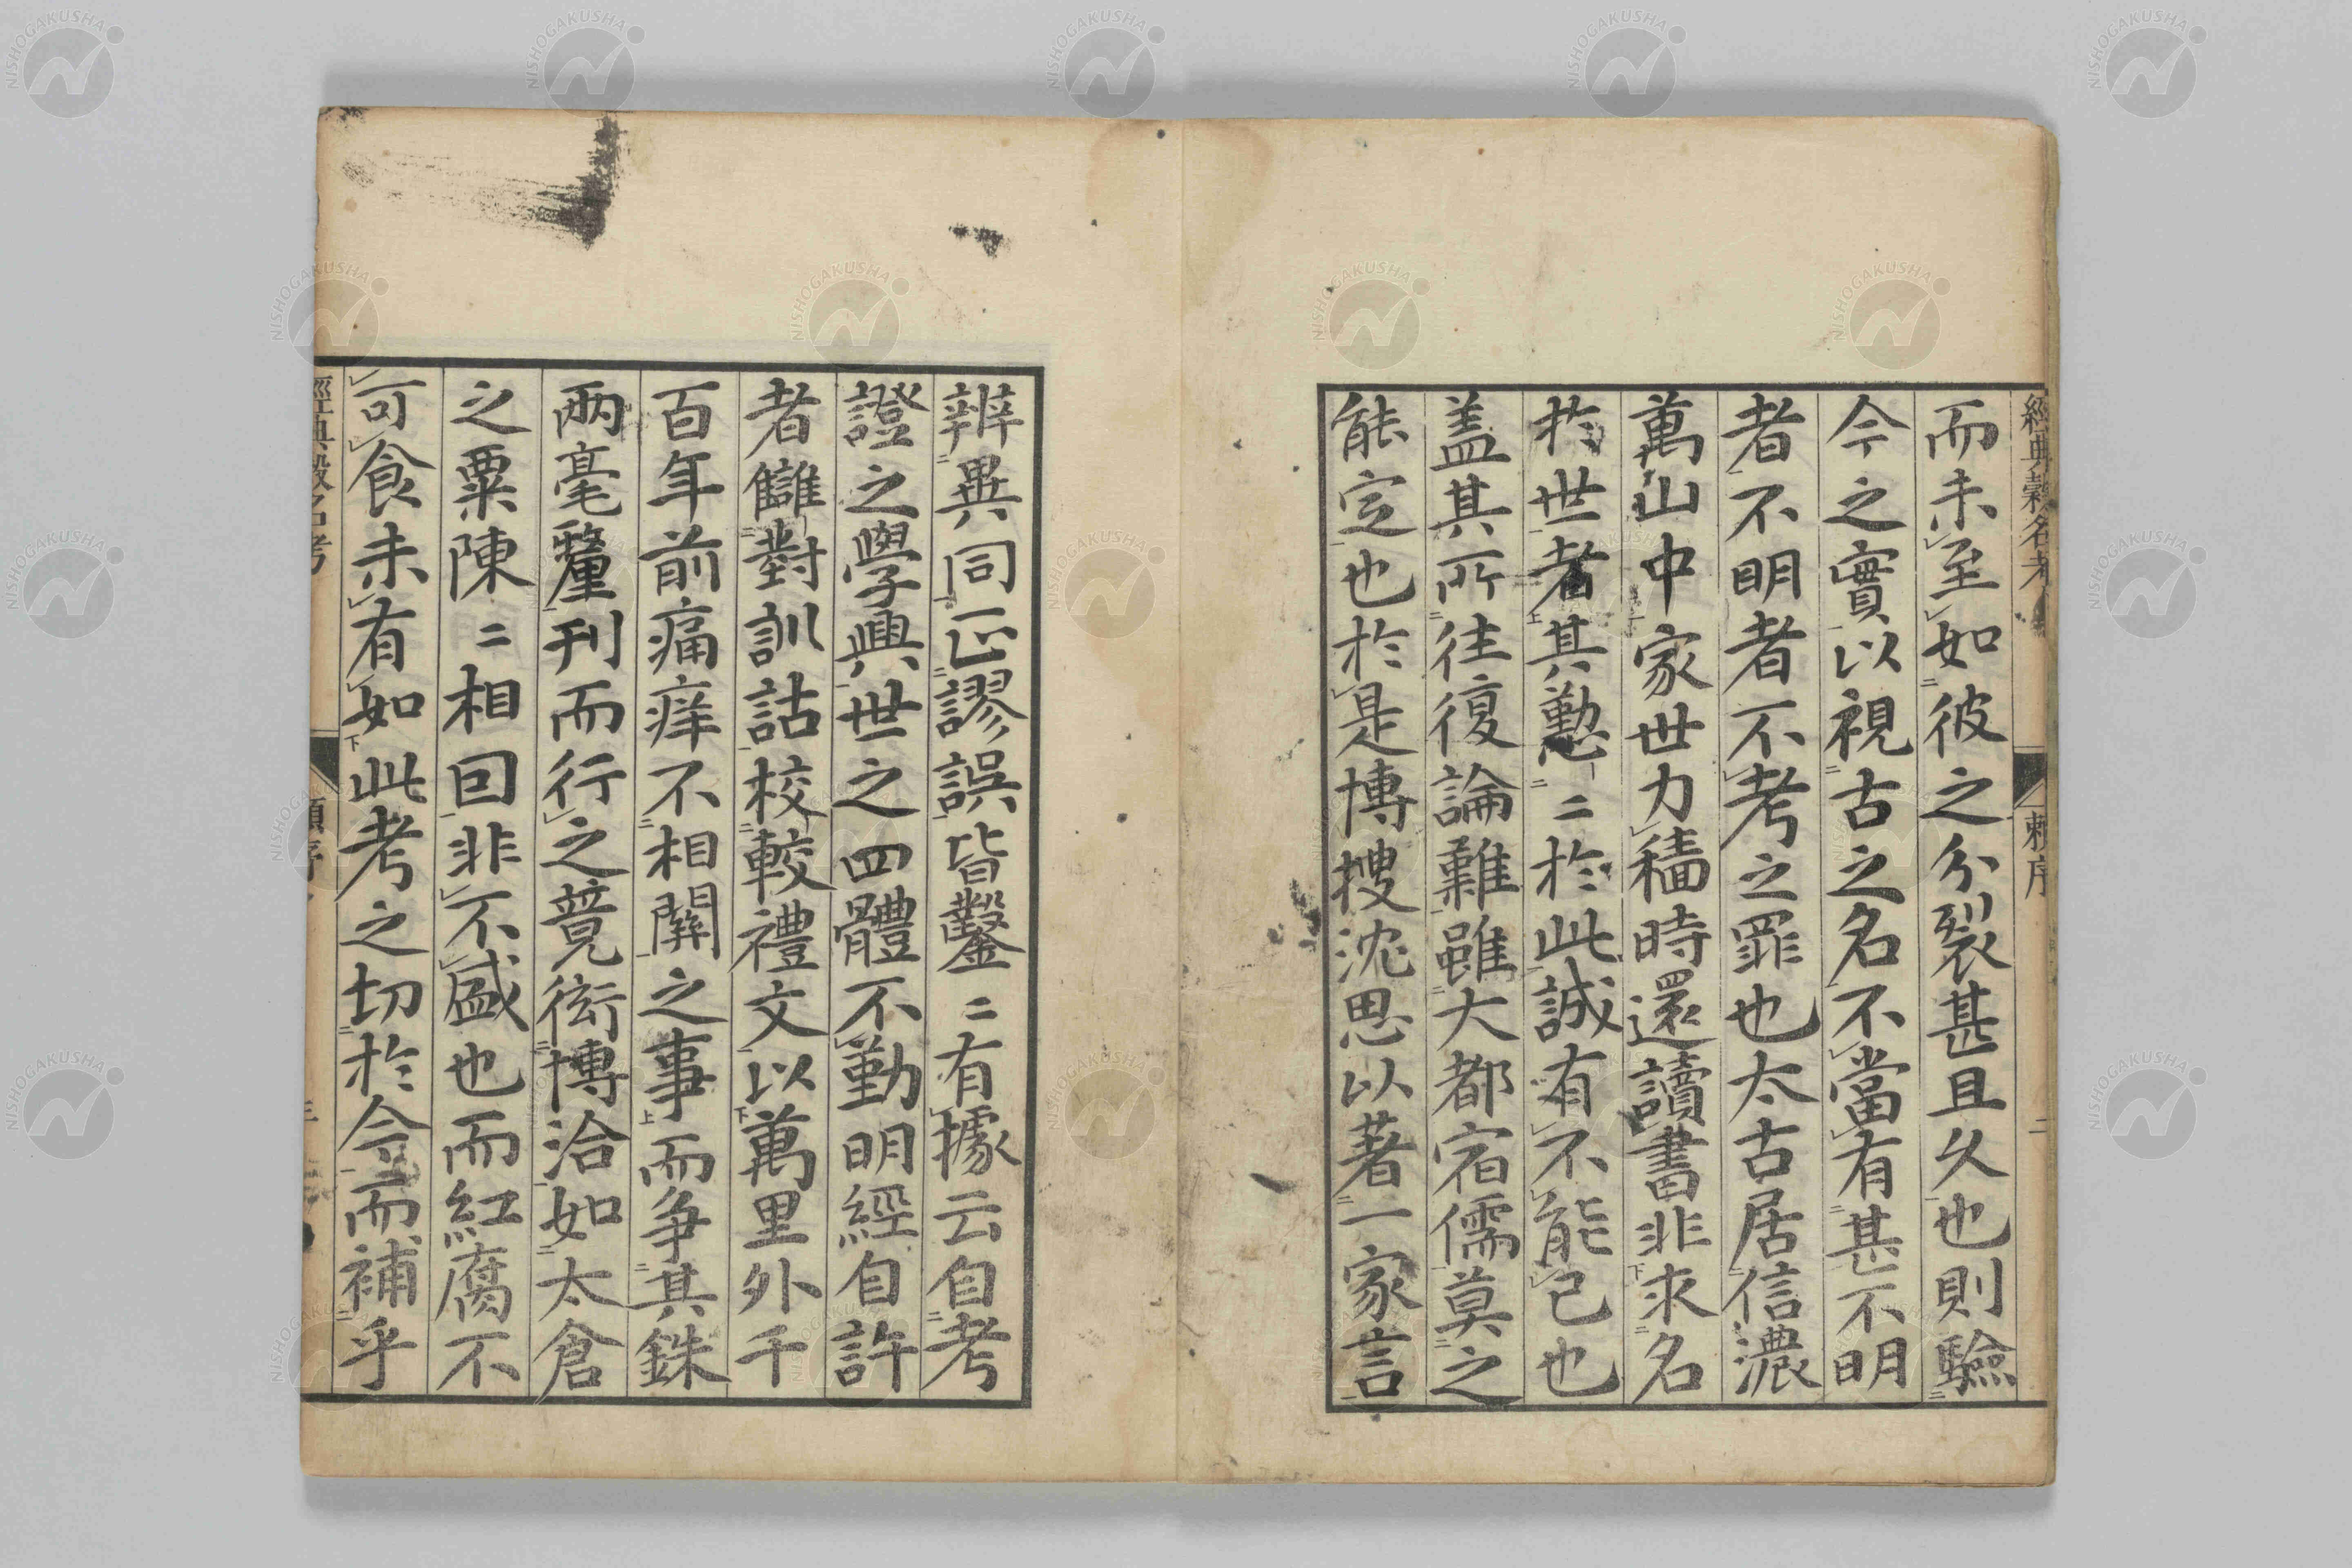 經典穀名考
賴序
二
而未至如彼之分裂甚且久也則驗
今之實以視古之名不當有甚不明
者不明者不考之罪也太古居信濃
萬山中家世力穡時還讀書非求名
於世者其懃〻於此誠有不能已也
盖其所徃復論難雖大都宿儒莫之
能定也於是博搜沈思以著一家言
辨異同正謬誤皆鑿〻有據云自考
證之學興世之四體不勤明經自許
者讎對訓詁校較禮文以萬里外千
百年前痛痒不相關之事而爭其銖
兩毫釐刊而行之競衒博洽如太倉
之粟陳〻相因非不盛也而紅腐不
可食未有如此考之切於今而補乎
經典穀名考
賴序
三